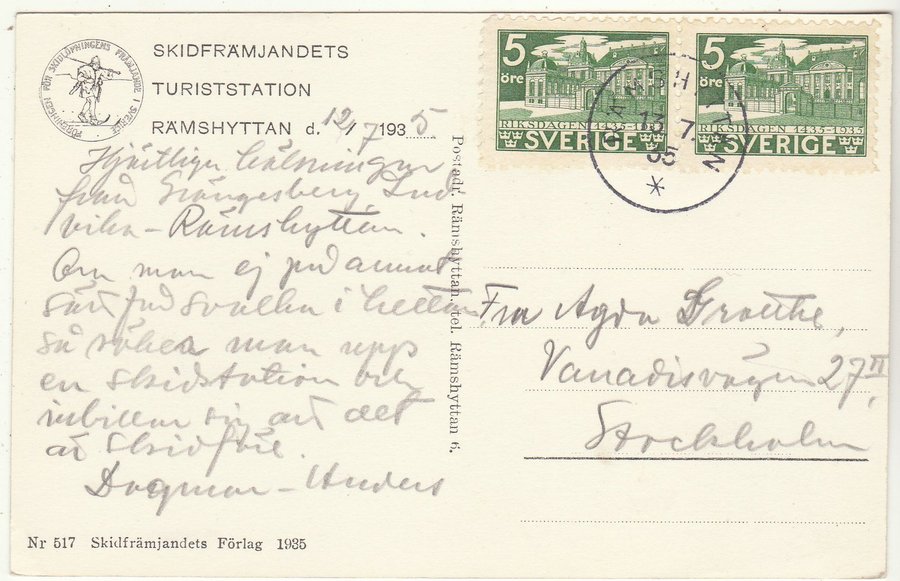 FÖRENINGEN FÖR SKIDLÖPNINGENS FRÄMJANDE I SVERIGE
SKIDFRÄMJANDETS
TURISTSTATION
RÄMSHYTTAN d. 12/7 1935.
Hjärtliga hälsningar
från Grängesberg, Lud
vika - Rämshyttan.
Om man ej på annat
sätt får svalka i hettan
så söker man upp
en skidstation och
inbillar sig att det
är skidföre.
Dagmar - Anders
Nr 517 Skidfrämjandets Förlag 1935
Postadr. Rämshyttan, tel. Rämshyttan 6.
5 öre
RIKSDAGEN 1435-1935
SVERIGE
5 öre
RIKSDAGEN 1435-1935
SVERIGE
RÄMSHYTTAN
13.7.
35
Fru Agda
Vanadisvägen 27 II,
Stockholm